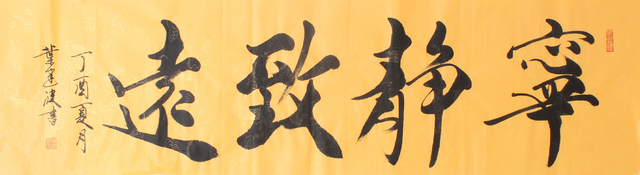 寧靜致遠
丁酉夏月
葉建波書